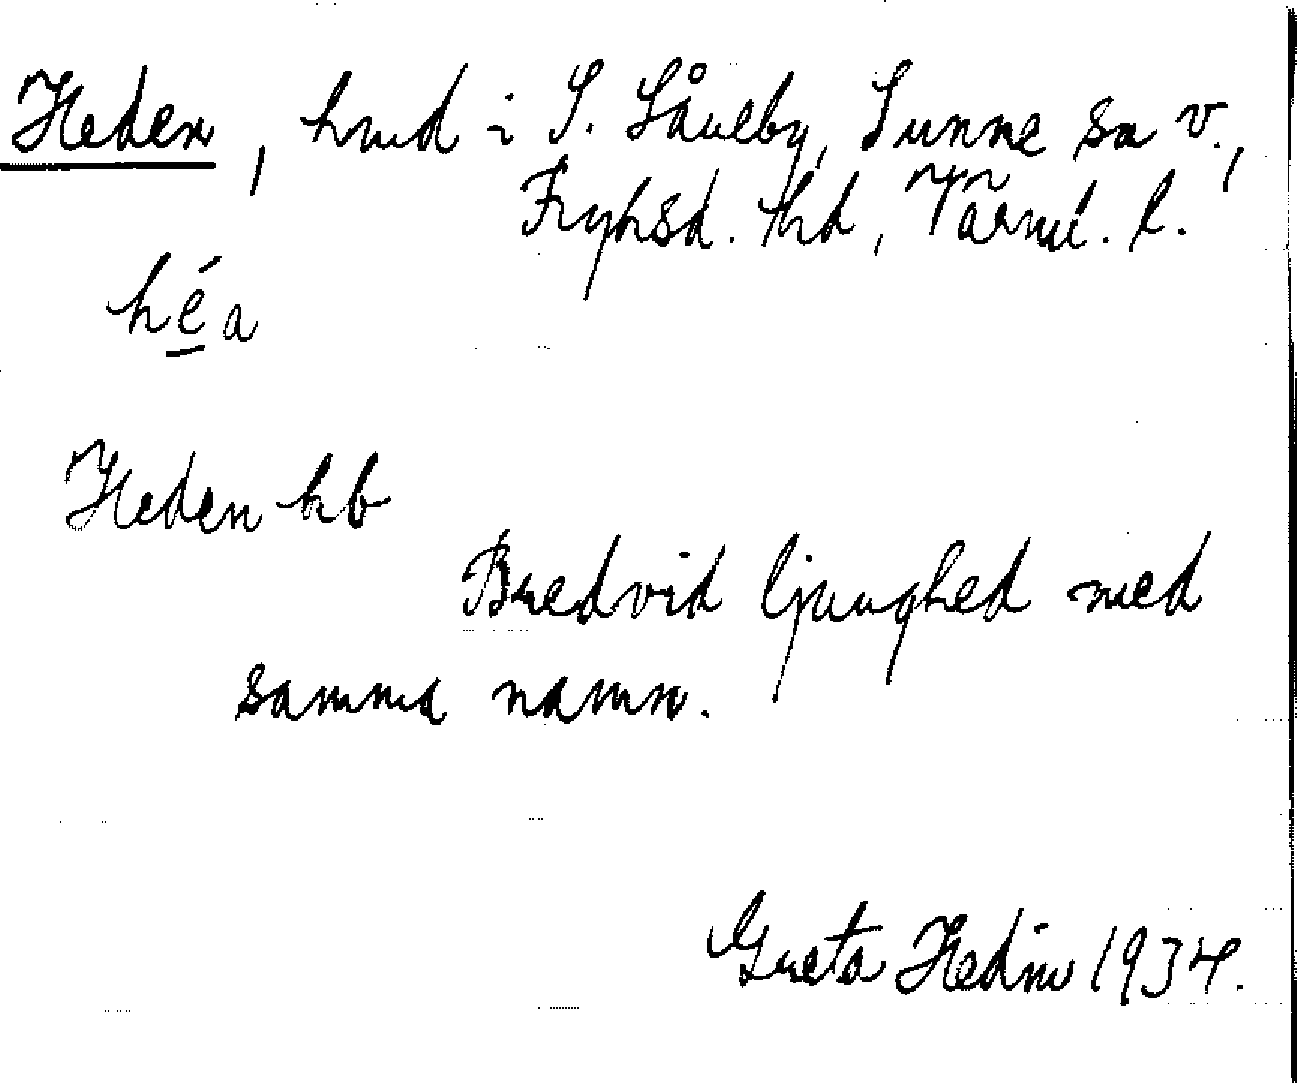 Heden, hmd i S. Såneby, Sunne sn v.,
Fryksd. hd, Värml. l.
héa
Heden hb
Bredvid ljunghed med
samma namn.
Greta Hedin 1934.